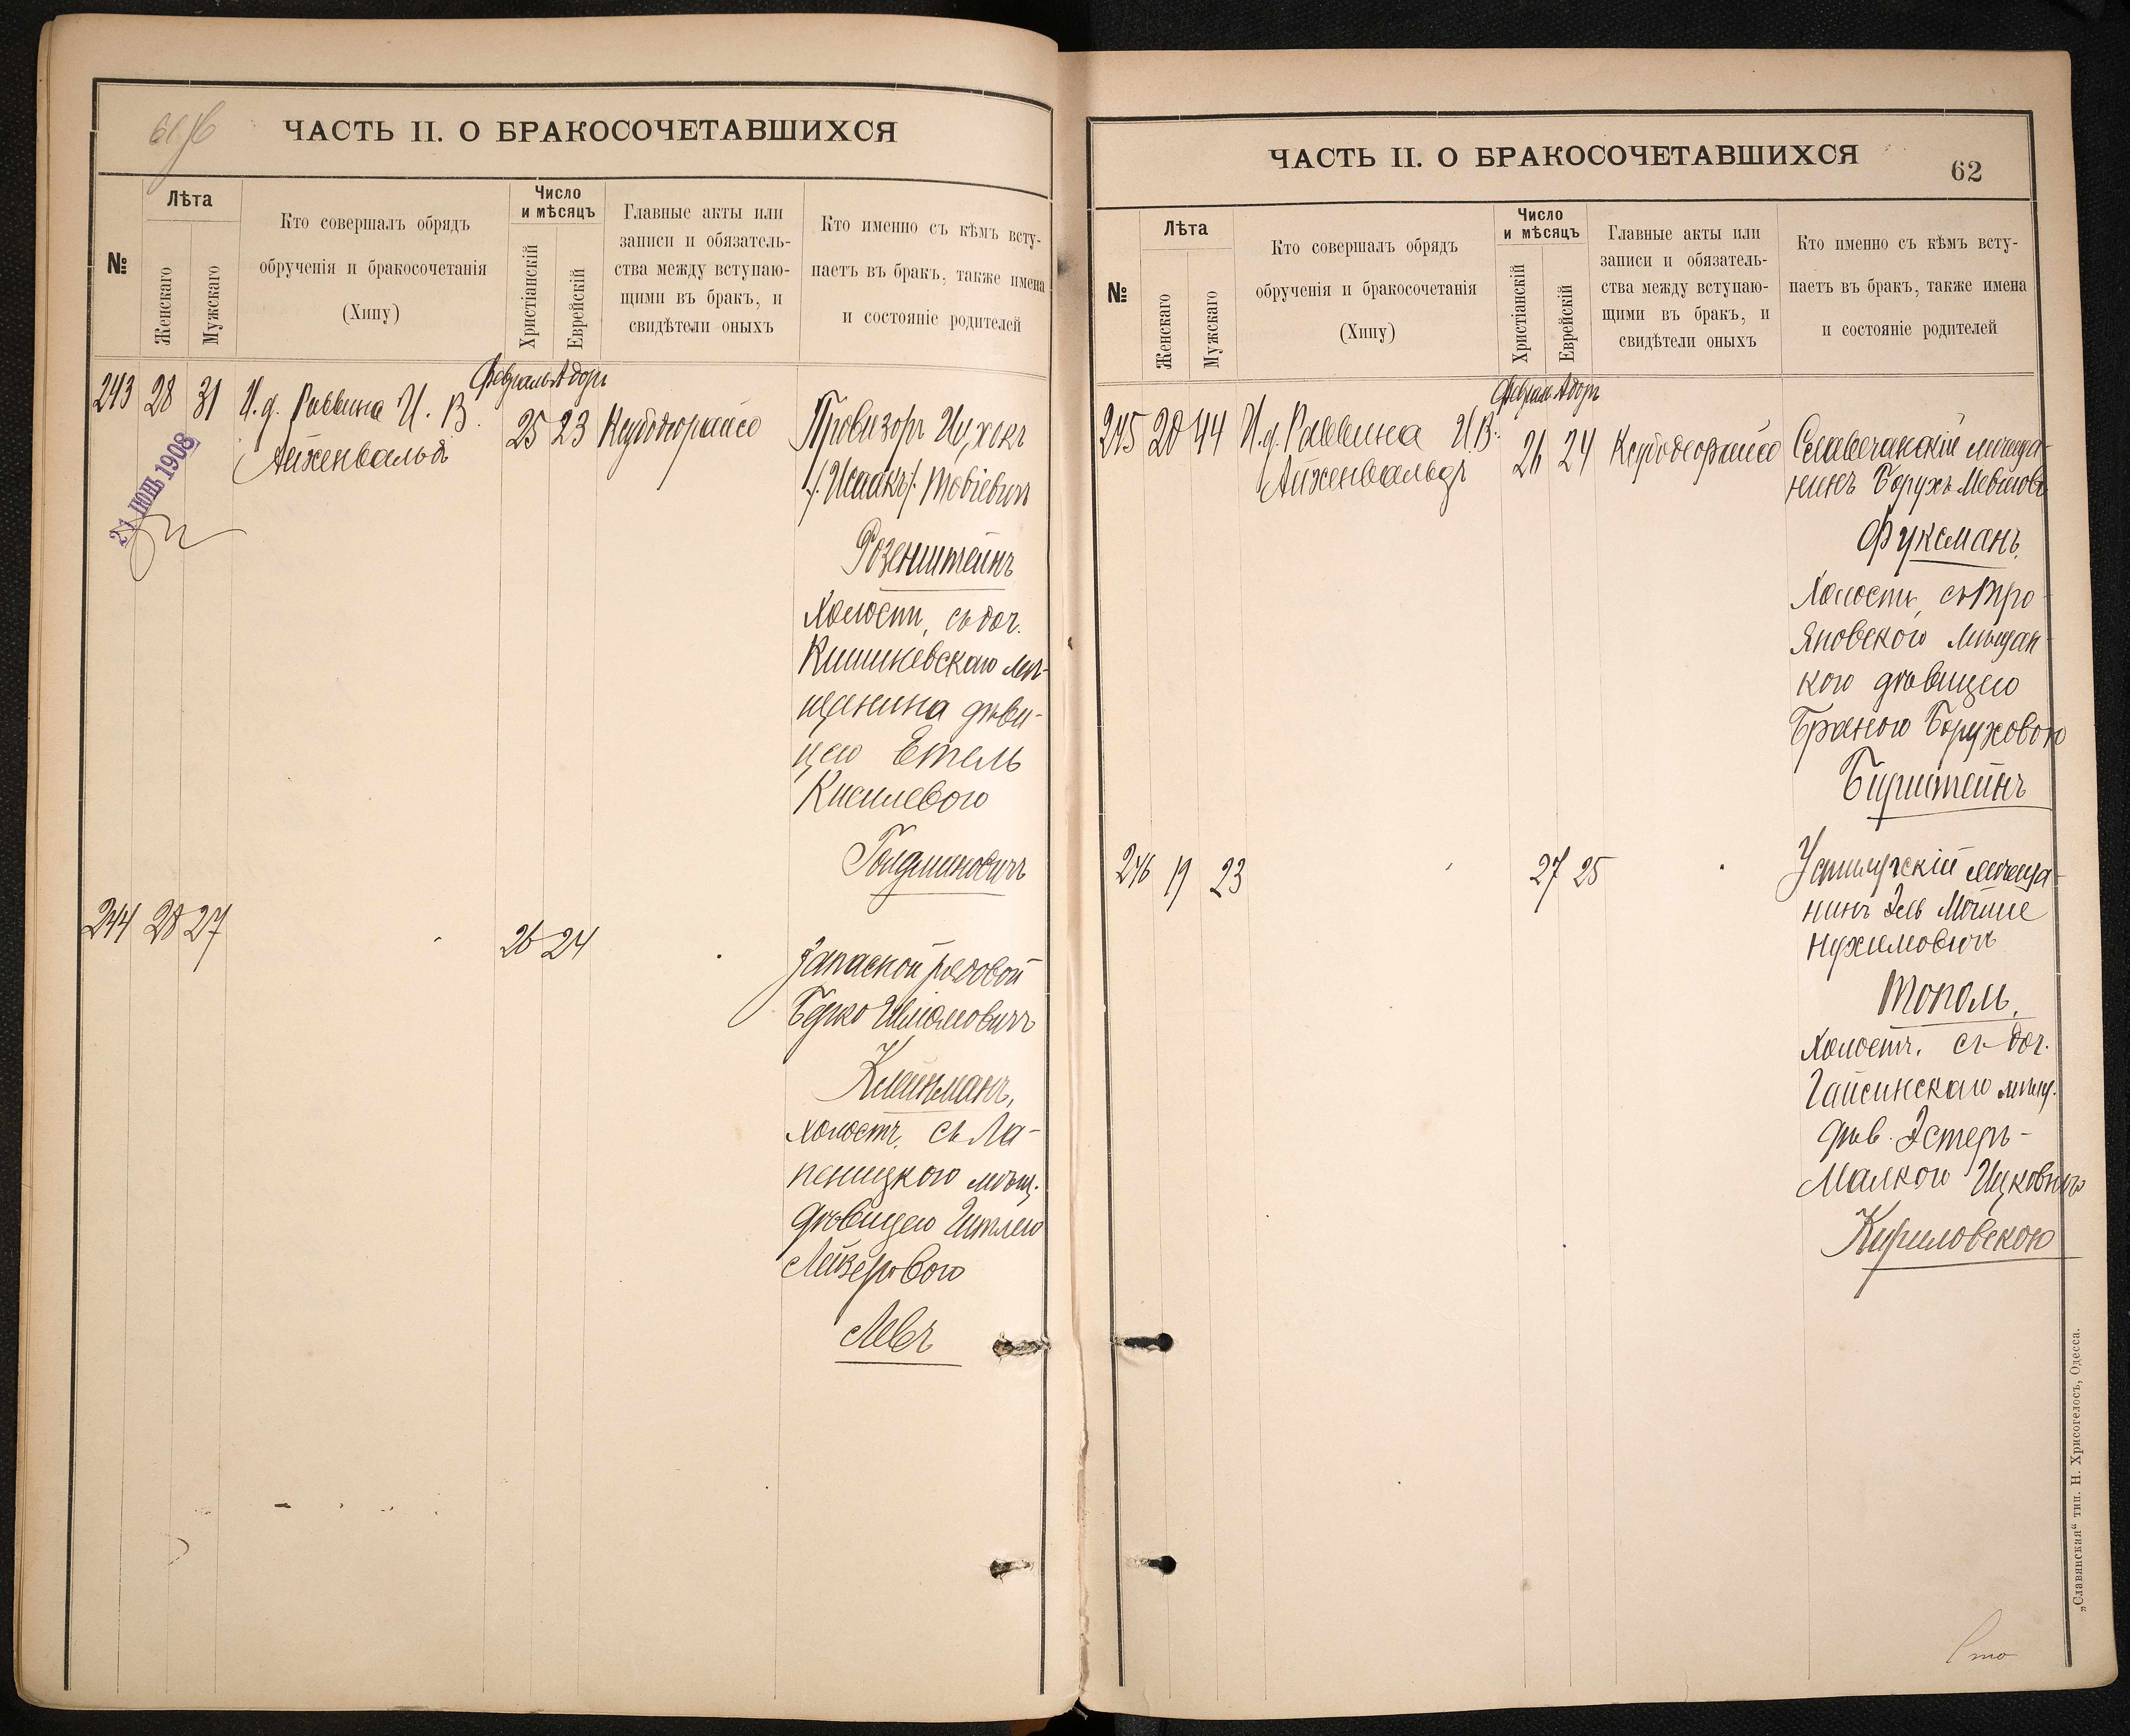 ЧАСТЬ II. О БРАКОСОЧЕТАВШИХСЯ
№
Лѣта
Женскаго
Мужскаго
Кто совершалъ обрядъ
обрученія и бракосочетанія
(Хипу)
Число
и мѣсяцъ
Христіанскій
Еврейскій
Главные акты или
записи и обязатель-
ства между вступаю-
щими въ бракъ, и
свидѣтели оныхъ
Кто именно съ кѣмъ всту-
паетъ въ бракъ, также имена
и состояніе родителей
243 28 31
И. д. Раввина И. В.
Айженвальд
Февраль Адоръ
25 23
Провизоръ Ицхокъ
/Исаакъ/ Товіевичъ
Розенштейнъ
холостъ, съ доч.
Кишиневскаго мѣ-
щанина дѣви-
цею Етель
Киселевою
21 ІЮН 1908
244 28 27
26 24
Запасной рядовой
Берко Шломовичъ
Клейнманъ,
холостъ, съ Ла-
дѣвицею
Лейзеровою
Левъ
ЧАСТЬ II. О БРАКОСОЧЕТАВШИХСЯ
62
№
Лѣта
Женскаго
Мужскаго
Кто совершалъ обрядъ
обрученія и бракосочетанія
(Хипу)
Число
и мѣсяцъ
Христіанскій
Еврейскій
Главные акты или
записи и обязатель-
ства между вступаю-
щими въ бракъ, и
свидѣтели оныхъ
Кто именно съ кѣмъ всту-
паетъ въ бракъ, также имена
и состояніе родителей
245 20 44
И. д. Раввина И. В.
Айженвальдъ
Феврал Адоръ
26 24
Славечанскій мѣща-
нинъ Борухъ
Фуксманъ,
холостъ, съ Тро-
яновскою мѣщан-
кою дѣвицею
Боруховою
Бирштейнъ
246 19 23
27 25
Устилугскій мѣща-
нинъ Мойше
Нухимовичъ
Тополь,
холостъ, съ доч.
Гайсинскаго мѣщ.
дѣв. Эстеръ-
Малкою Ицковною
Кириловскою
„Славянская“ тип. Н. Хрисогелосъ, Одесса.